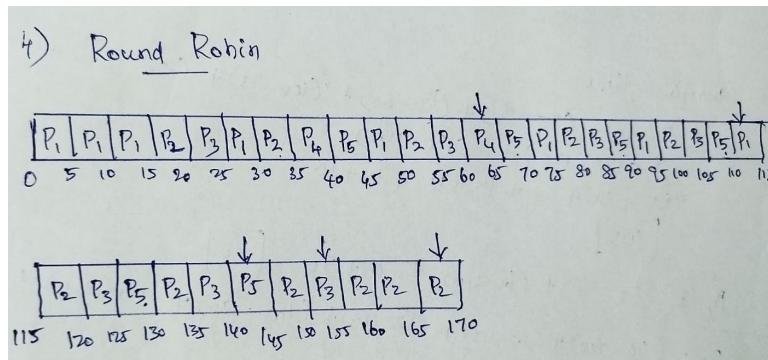 4) Round Robin
P1 P1 P1 P2 P3 P1 P2 P4 P5 P1 P2 P3 P4 P5 P1 P2 P3 P5 P1 P2 P3 P5 P1
0 5 10 15 20 25 30 35 40 45 50 55 60 65 70 75 80 85 90 95 100 105 110
P2 P3 P5 P2 P3 P5 P2 P3 P2 P2 P2
115 120 125 130 135 140 145 150 155 160 165 170